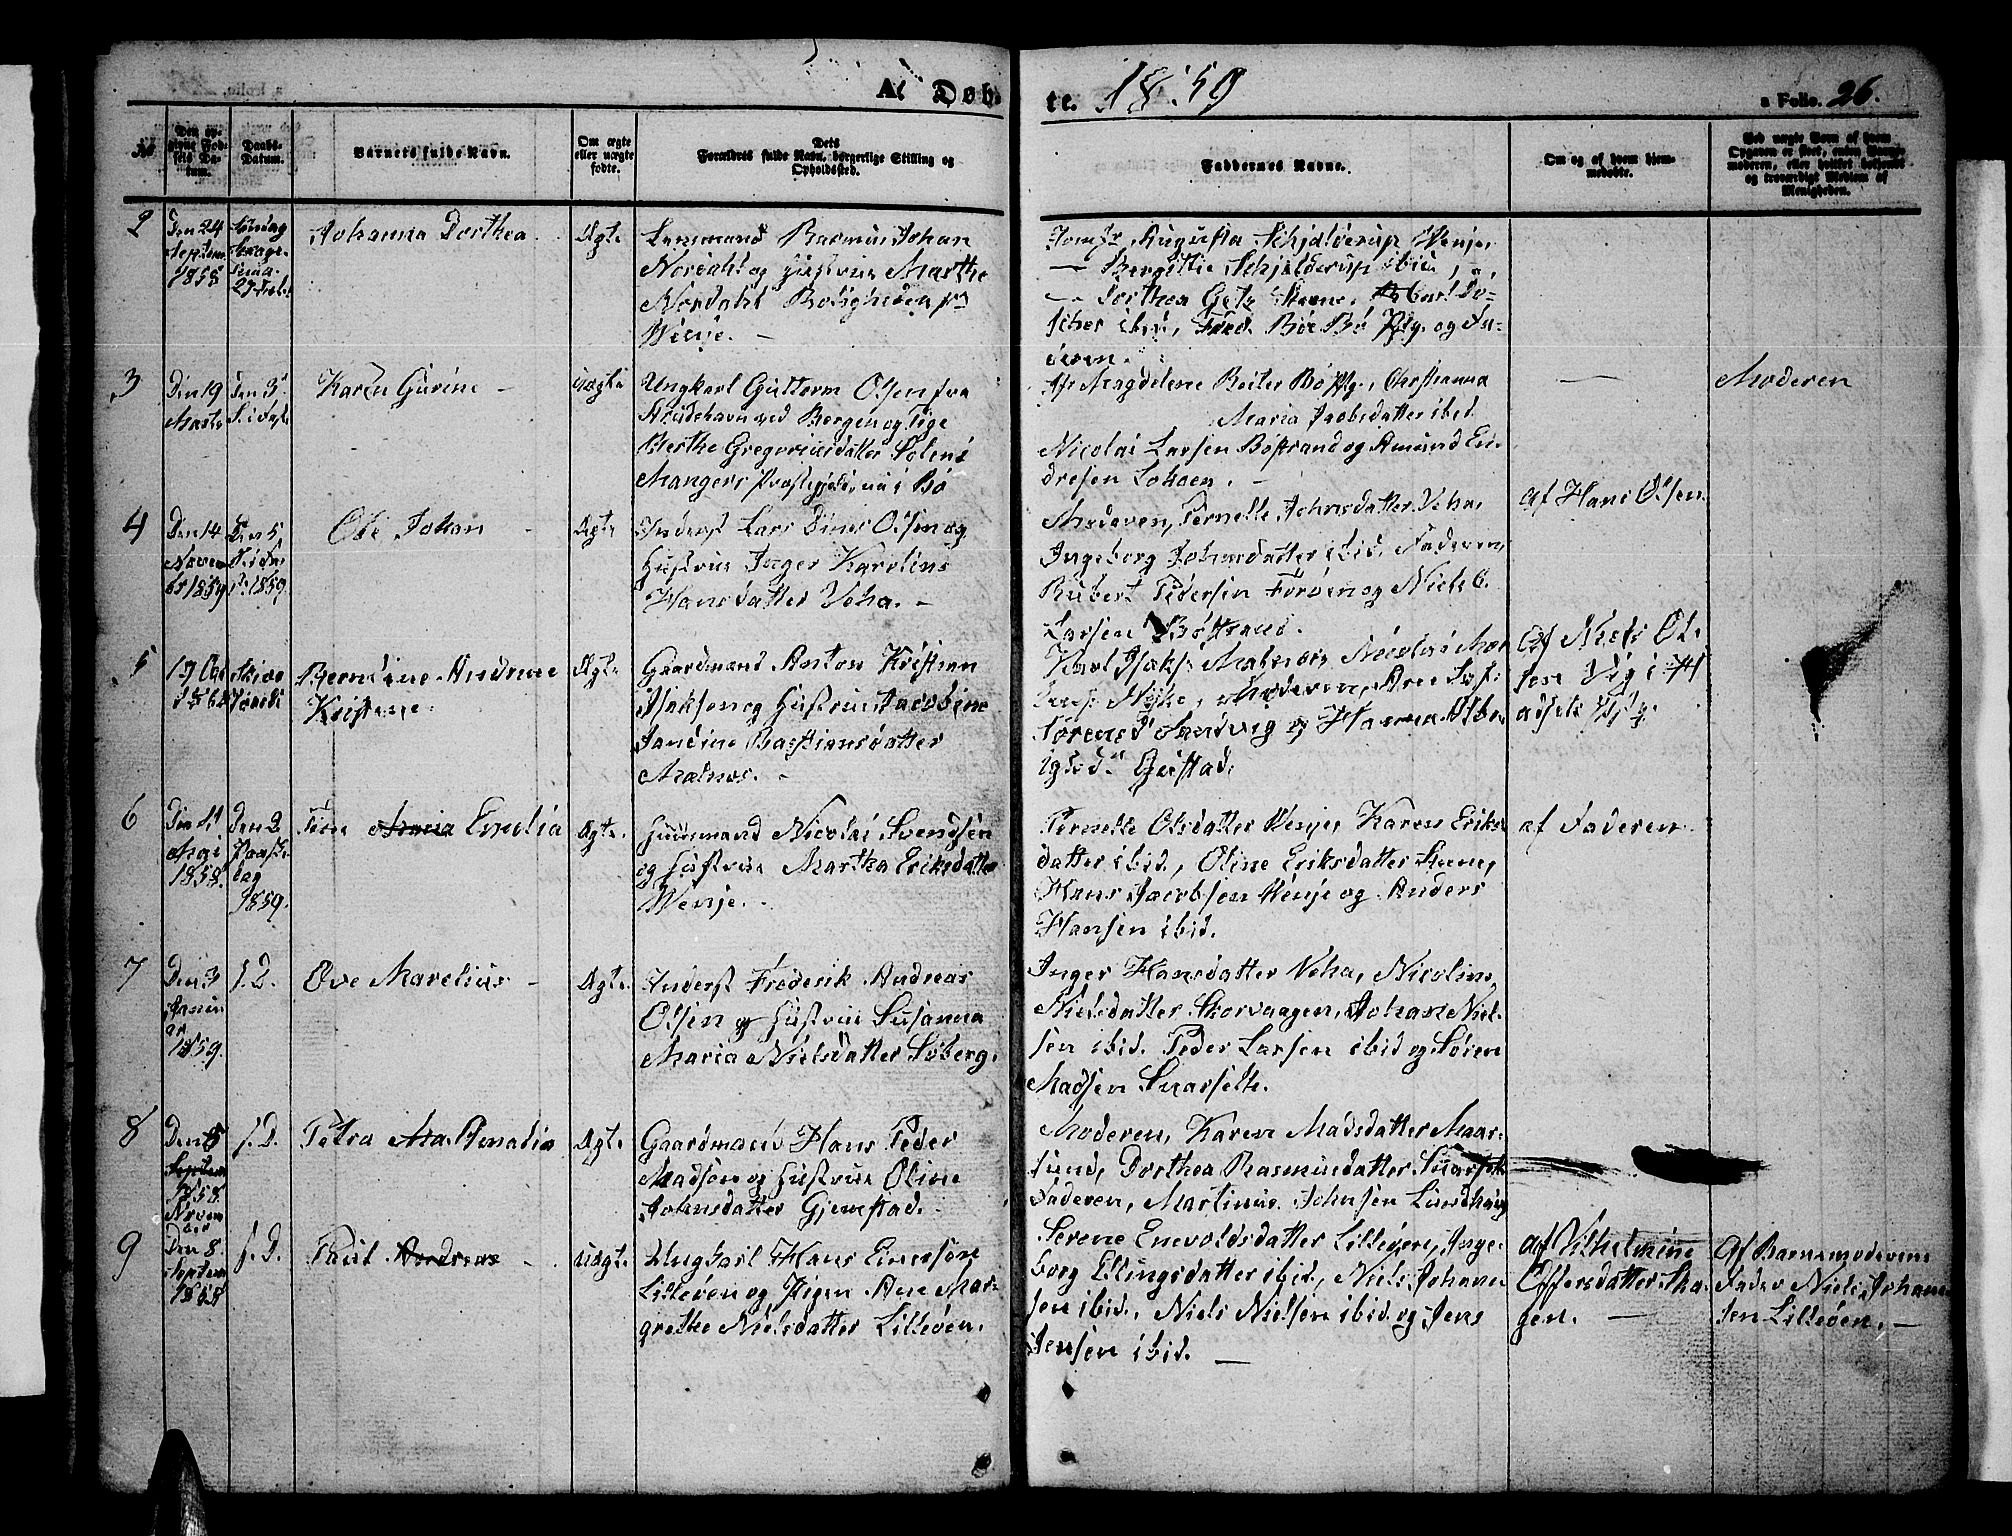 A. Døb-
te. 1859
a Folio. 26.
No
Den op-
givne Fød-
sels Da-
tum.
Daabs-
Datum.
Barnets fulde Navn.
Om ægte
eller uægte
fødte.
Dets
Forældres fulde Navn, borgerlige Stilling og
Opholdssted.
Faddernes Navne.
Om og af hvem hjem-
medøbt.
Ved uægte Børn af hvem
Opgaven er skeet, enten Jorde-
moderen, eller hvilket bosiddende
og troværdigt Medlem af
Menigheden.
2
Den 24
Septem
1858
Søndag
Sexage-
sima
27 Feb.
Johanna Dorthea
Ægte
Lensmand Rasmus Johan
Nordahl og Hustrue Marthe
Nordahl Boligheden paa
Wenje. —
Jomfr Augusta Schjelderup Wenje,
— Bergithe Schjelderup ibid,
— Dorthea Getz Steene, Carl Do-
scher ibid, Fred. Böe Bö Pg. og Fa-
deren.
3
Den 19
Marts
Den 3die
S. i Fast.
Karen Gurine —
uægte
Ungkarl Guttorm Olsen fra
Strudshavn ved Bergen og Pige
Berthe Gregoriusdatter Solem
Mangers Præstegjeld, nu i Bö
Magdelene Reiter Bö Pg., Christianna
Maria Jacobsdatter ibid
Nicolai Larsen Böstrand og Amund En-
dresen Lohaen. —
—
Moderen
4
Den 14
Novem
br 1859
Den 5
S. i Fas
t. 1859.
Ole Johan
Ægte
Inderst Lars Dines Olsen og
Hustrue Inger Karoline
Hansdatter Veha. —
Moderen, Pernelle Johnsdatter Veha,
Ingeborg Johnsdatter ibid, Faderen,
Rubert Pedersen Förven og Niels C.
Larsen Böstrand.
af Hans Olsen
5
19 Oct
1858
Skjær
Torsd.
Berndine Andrine
Kristine
Ægte
Gaardmand Anton Kristian
Isaksen og Hustrue Jacobine
Jandine Bastiansdatter
Malnes. —
Karl Isaks. Malnes, Nicolai Mor
tens. Nyke, Moderen, Ane Sof.
Sörensd. Sandvig og Hanna Albr
igtsd. Gustad.
Af Niels Ol-
sen Vig i H
adsels Pg.
6
Den 4de
Mai
1858.
Den 2
Paaske
dag
1859.
Trine Maria Emelia
Ægte.
Huusmand Nicolai Svendsen
og Hustrue Martha Eriksdatter
Wenje. -
Pernelle Olsdatter Wenje, Karen Eriks
datter ibid, Oline Eriksdatter Steene,
Hans Jacobsen Wenje og Anders
Hansen ibid.
af Faderen
7
Den 3
Janu
ar
1859.
S. D.
Ove Marelius —
Ægte.
Inderst Frederik Andreas
Olsen og Hustrue Susanna
Maria Nielsdatter Söberg.
Inger Hansdatter Veha, Nicoline
Nielsdatter Skorvaagen, Johan Niel-
sen ibid. Peder Larsen ibid og Sören
Madsen Svarfelt.
8
Den 5
Septem
1858
Novem
ber
S. D.
Petra Ma. Amalia
Ægte
Gaardmand Hans Peder
Madsen og Hustrue Oline
Johnsdatter Gjerstad.
Moderen, Karen Madsdatter Maar-
sund, Dorthea Rasmusdatter Svarfelt
Faderen, Martinus Johnsen Lundhaug
9
Den 8.
Septem
1858
S. D.
Paul Andreas -
Uægte.
Ungkarl Hans Einersen
Lilleöen og Pigen Ane Mar-
grethe Nielsdatter Lilleöen.
Serene Enevoldsdatter Lilleöen, Inge-
borg Ellingsdatter ibid, Niels Johann
sen ibid, Niels Nielsen ibid og Jens
Jensen ibid. —
af Vilhelmine
Offersdatter Ska-
gen. —
Af Barnemoderens
Fader Niels Johan-
sen Lilleöen. —